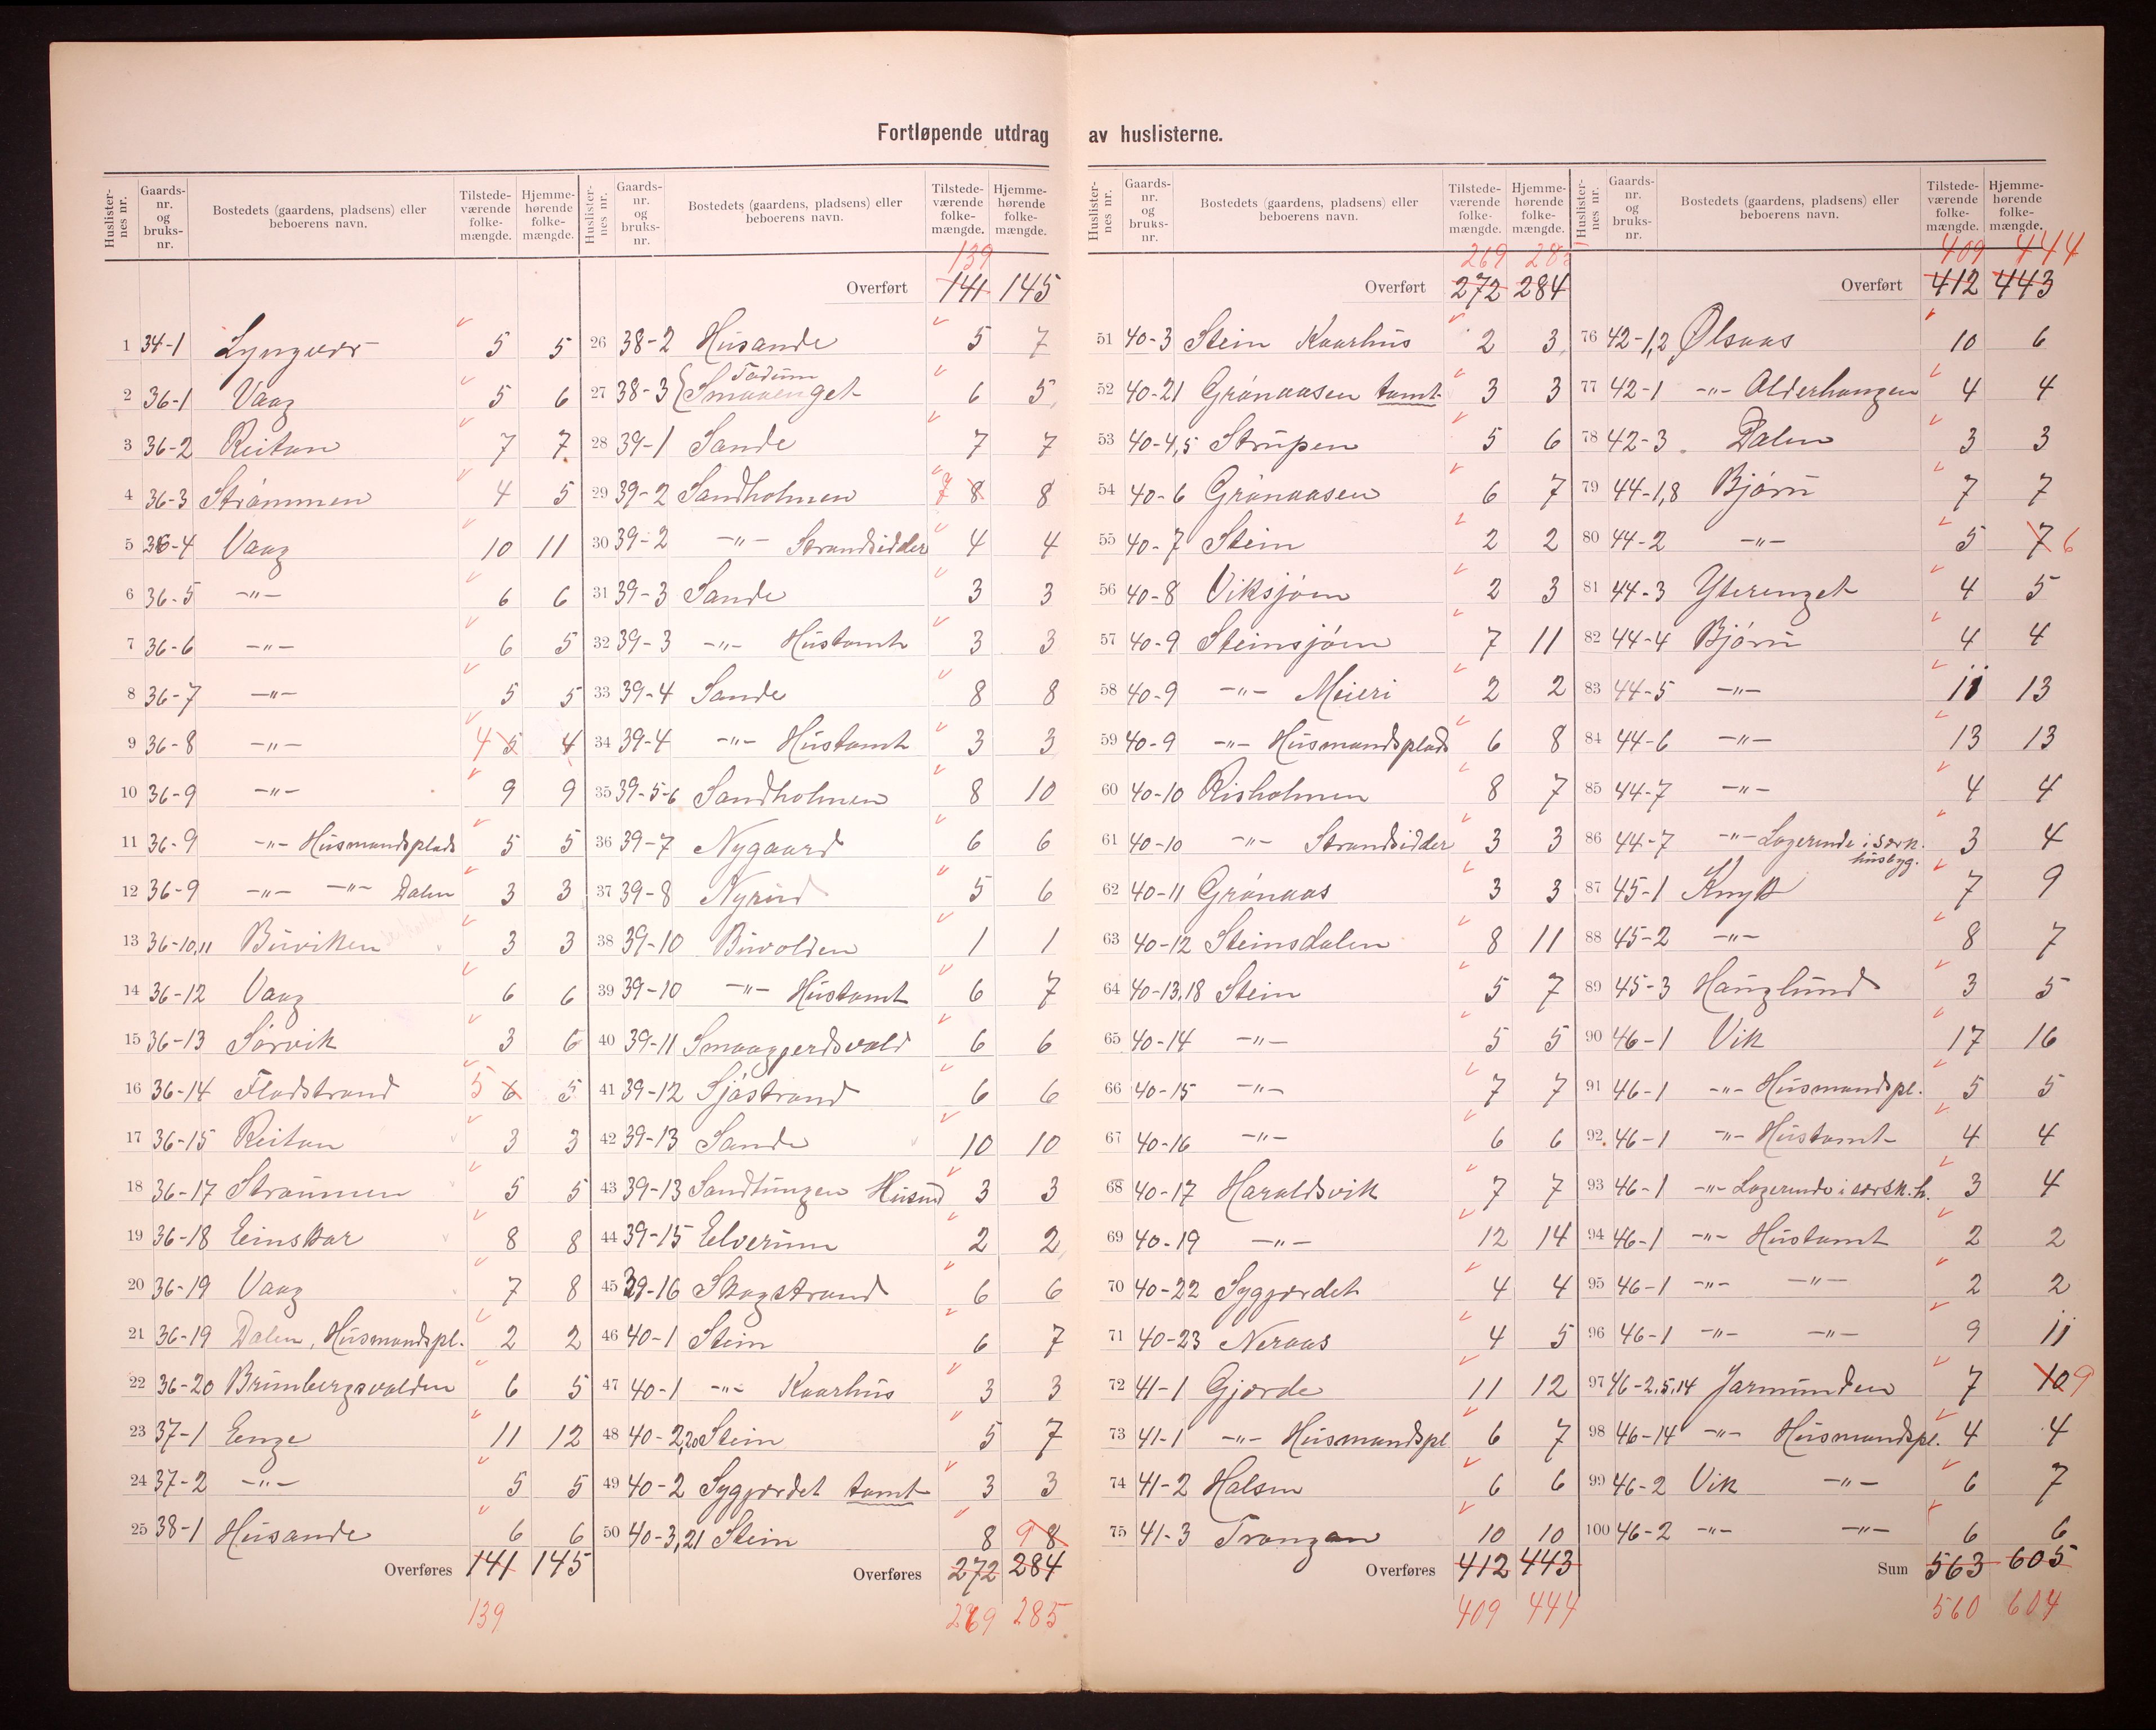 Fortløpende utdrag av huslisterne.
Huslister-nes nr. Gaards-nr. og bruks-nr. Bostedets (gaardens, pladsens) eller beboerens navn. Tilstede-værende folke-mængde. Hjemme-hørende folke-mængde.
1 34-1 Lyngvær 5 5
2 36-1 Vaag 5 6
3 36-2 Reitan 7 7
4 36-3 Strømmen 4 5
5 36-4 Vaag 10 11
6 36-5 -"- 6 6
7 36-6 -"- 6 5
8 36-7 -"- 5 5
9 36-8 -"- 4 5 4
10 36-9 -"- 9 9
11 36-9 -"- Husmandsplads 5 5
12 36-9 -"- -"- Dalen 3 3
13 36-10,11 Buviken 3 3
14 36-12 Vaag 6 6
15 36-13 Sørvik 3 6
16 36-14 Fladstrand 5 6 5
17 36-15 Reitan 3 3
18 36-17 Straumen 5 5
19 36-18 Einskar 8 8
20 36-19 Vaag 7 8
21 36-19 Dalen, Husmandspl. 2 2
22 36-20 Brunbergsvolden 6 5
23 37-1 Enge 11 12
24 37-2 -"- 5 5
25 38-1 Husande 6 6
Overføres 141 145
139
Huslister-nes nr. Gaards-nr. og bruks-nr. Bostedets (gaardens, pladsens) eller beboerens navn. Tilstede-værende folke-mængde. Hjemme-hørende folke-mængde.
139
Overført 141 145
26 38-2 Husande 5 7
27 38-3 Smaaenget 6 5
28 39-1 Sande 7 7
29 39-2 Sandholmen 7 8 8
30 39-2 -"- Strandsidder 4 4
31 39-3 Sande 3 3
32 39-3 -"- Hustomt 3 3
33 39-4 Sande 8 8
34 39-4 -"- Hustomt 3 3
35 39-5-6 Sandholmen 8 10
36 39-7 Nygaard 6 6
37 39-8 Nyrud 5 6
38 39-10 Buvolden 1 1
39 39-10 -"- Hustomt 6 7
40 39-11 Smaagjerdsvold 6 6
41 39-12 Sjøstrand 6 6
42 39-13 Sande 10 10
43 39-13 Sandtungen Husund 3 3
44 39-15 Elverum 2 2
45 39-16 Skogstrand 6 6
46 40-1 Stein 6 7
47 40-1 -"- Kaarhus 3 3
48 40-2,20 Stein 5 7
49 40-2 Sygjerdet tomt 3 3
50 40-3,21 Stein 8 9 8
Overføres 272 284
269 285
Huslister-nes nr. Gaards-nr. og bruks-nr. Bostedets (gaardens, pladsens) eller beboerens navn. Tilstede-værende folke-mængde. Hjemme-hørende folke-mængde.
269 285
Overført 272 284
51 40-3 Stein Kaarhus 2 3
52 40-21 Grønaasen tomt 3 3
53 40-4,5 Strupen 5 6
54 40-6 Grønaasen 6 7
55 40-7 Stein 2 2
56 40-8 Viksjøen 2 3
57 40-9 Steinsjøen 7 11
58 40-9 -"- Meieri 2 2
59 40-9 -"- Husmandsplads 6 8
60 40-10 Risholmen 8 7
61 40-10 -"- Strandsidder 3 3
62 40-11 Grønaas 3 3
63 40-12 Steinsdalen 8 11
64 40-13,18 Stein 5 7
65 40-14 -"- 5 5
66 40-15 -"- 7 7
67 40-16 -"- 6 6
68 40-17 Haraldsvik 7 7
69 40-19 -"- 12 14
70 40-22 Sygjerdet 4 4
71 40-23 Neraas 4 5
72 41-1 Gjærde 11 12
73 41-1 -"- Husmandspl 6 7
74 41-2 Halsen 6 6
75 41-3 Trangan 10 10
Overføres 412 443
409 444
Huslister-nes nr. Gaards-nr. og bruks-nr. Bostedets (gaardens, pladsens) eller beboerens navn. Tilstede-værende folke-mængde. Hjemme-hørende folke-mængde.
409 444
Overført 412 443
76 42-1,2 Ølsaas 10 6
77 42-1 -"- Olderhaugen 4 4
78 42-3 Dalen 3 3
79 44-1,8 Bjørn 7 7
80 44-2 -"- 5 7 6
81 44-3 Yterenget 4 5
82 44-4 Bjørn 4 4
83 44-5 -"- 11 13
84 44-6 -"- 13 13
85 44-7 -"- 4 4
86 44-7 -"- Logerende i særk. husbyg. 3 4
87 45-1 Knyk 7 9
88 45-2 -"- 8 7
89 45-3 Hauglund 3 5
90 46-1 Vik 17 16
91 46-1 -"- Husmandspl. 5 5
92 46-1 -"- Hustomt 4 4
93 46-1 -"- Logerende i særsk. h. 3 4
94 46-1 -"- Hustomt 2 2
95 46-1 -"- -"- 2 2
96 46-1 -"- -"- 9 11
97 46-2,5,14 Jarmunden 7 10 9
98 46-14 -"- Husmandspl. 4 4
99 46-2 Vik -"- 6 7
100 46-2 -"- -"- 6 6
Sum 563 605
560 604